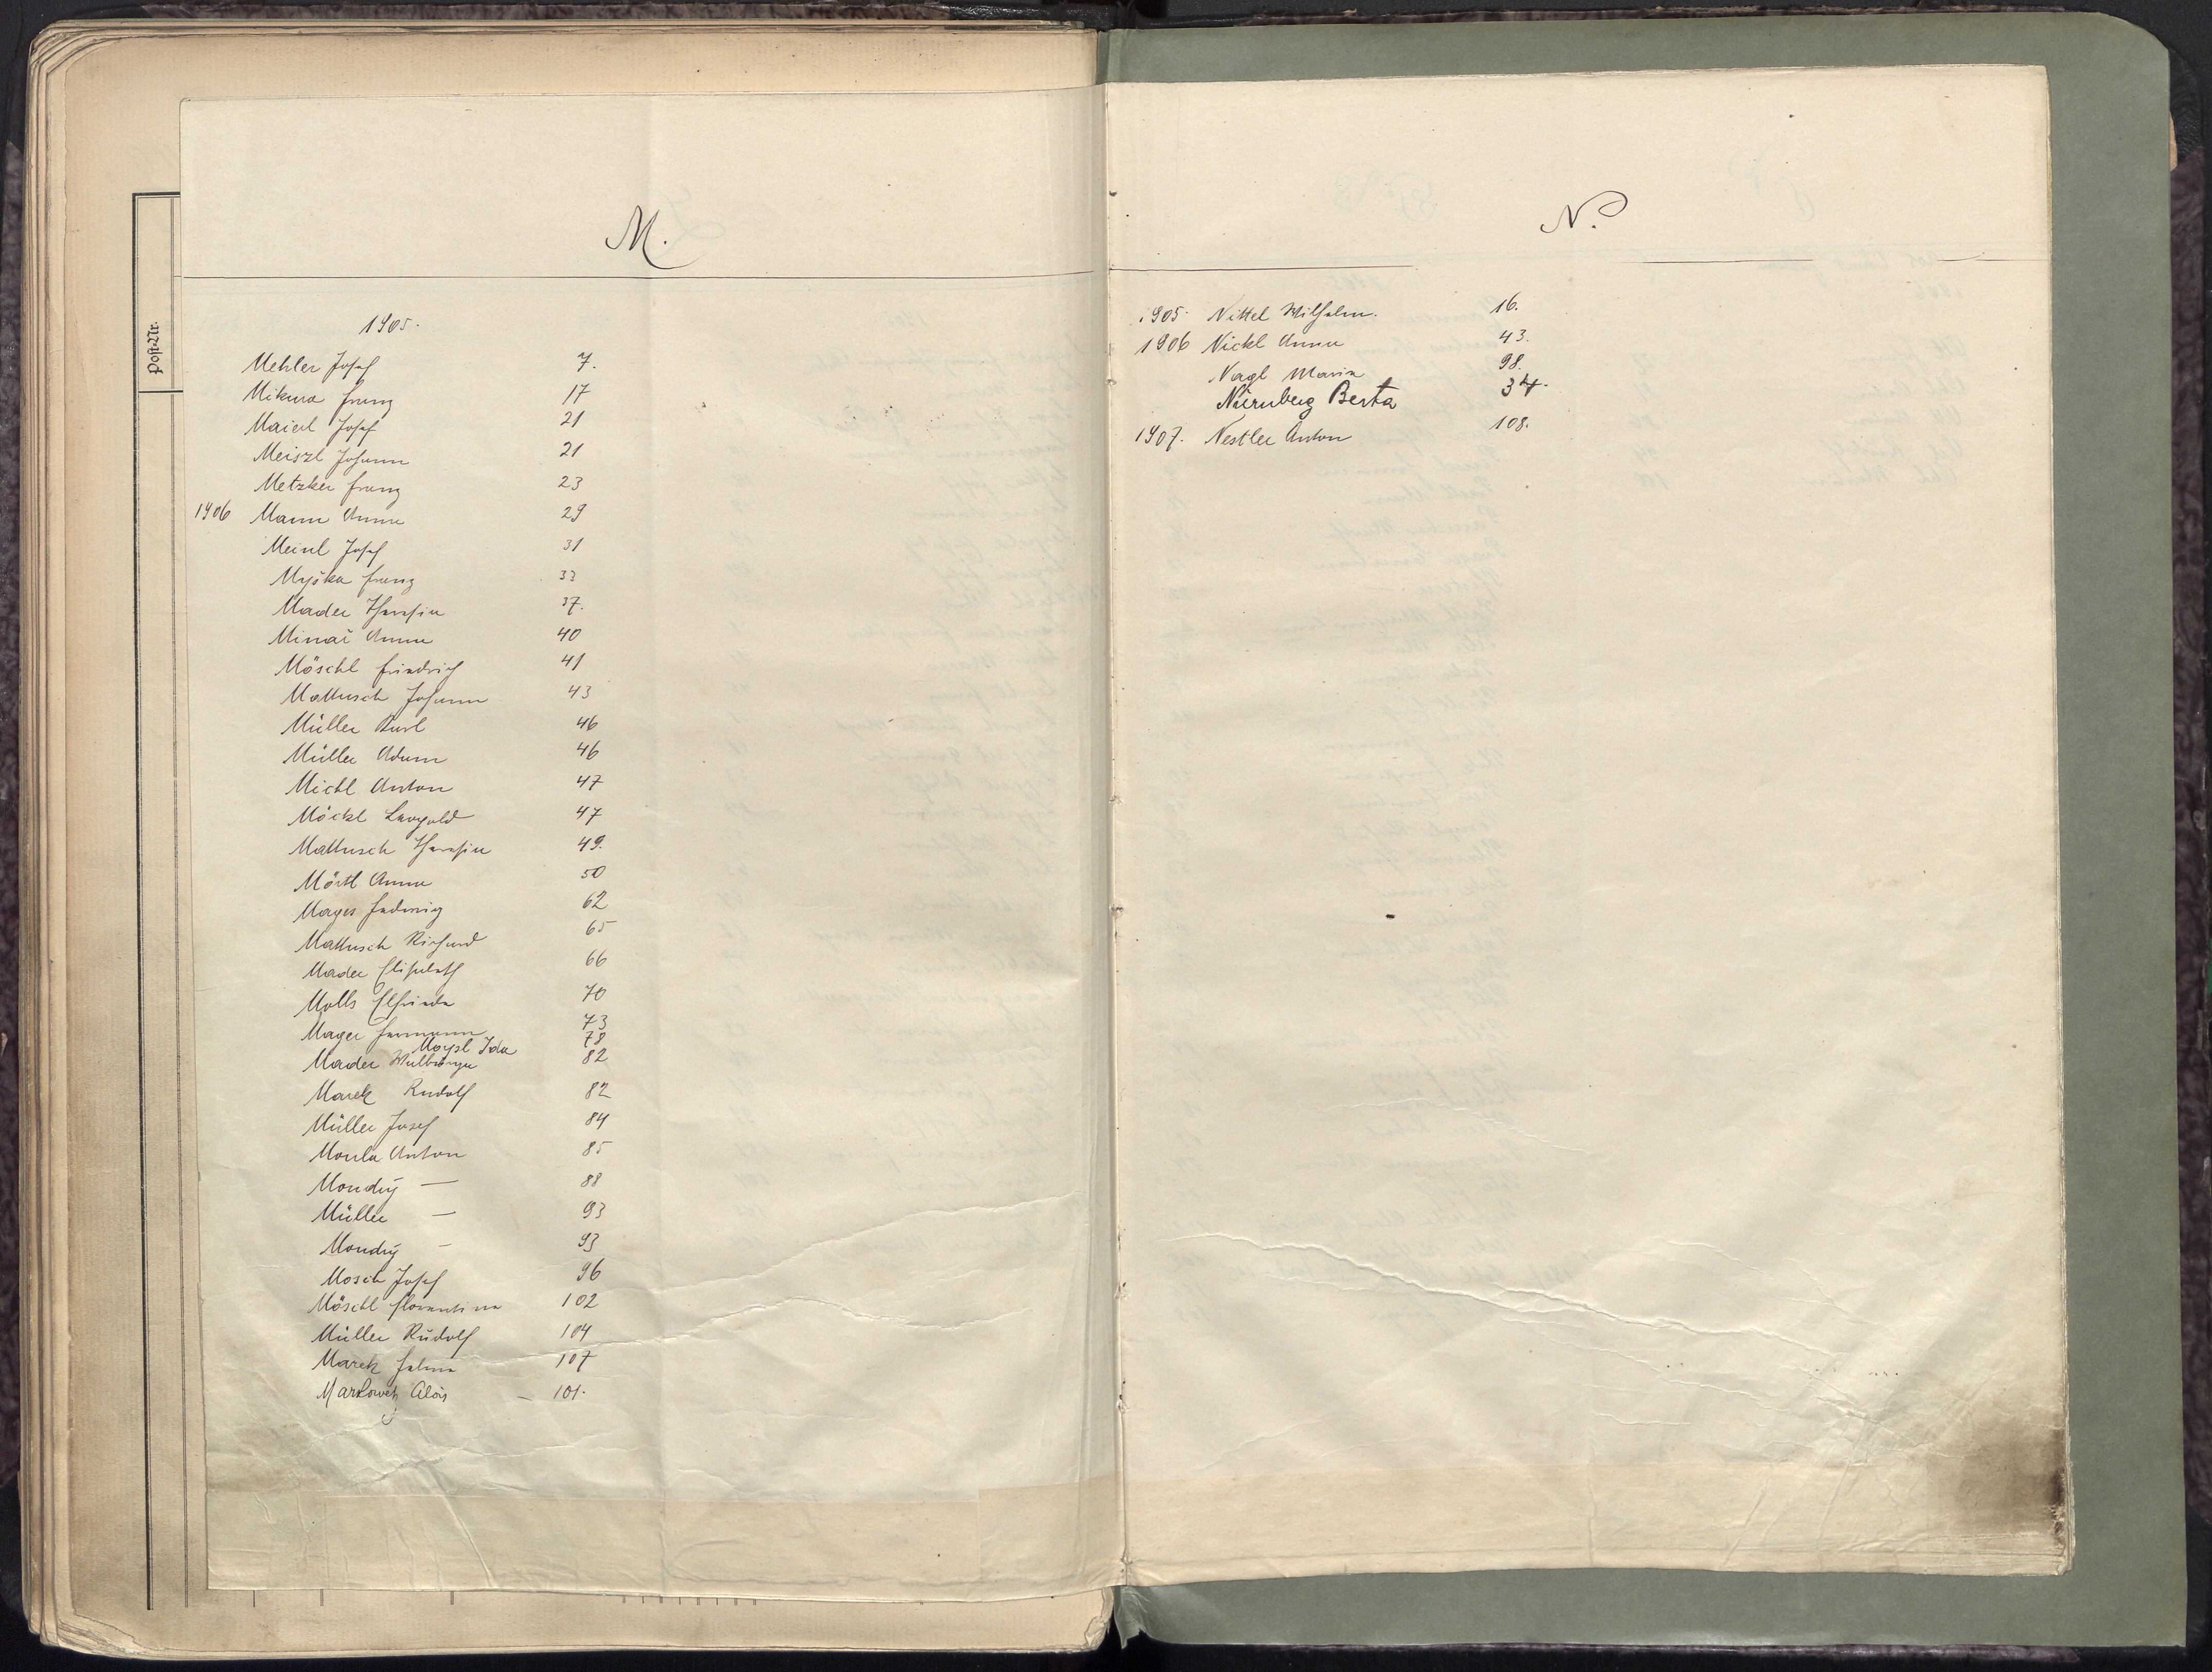 Post-Nr.
M.
1905.
Mehler Josef 7.
Mikura Franz 17
Maierl Josef 21
Meiszl Johann 21
Metzker Franz 23
1906 Mann Anna 29
Meinl Josef 31
Myška Franz 33
Mader Theresia 37.
Minař Anna 40
Möschl Friedrich 41
Mattusch Johann 43
Müller Karl 46
Müller Adam 46
Michl Anton 47
Möckl Leopold 47
Mattusch Theresia 49.
Mörtl Anna 50
Mages Hedwig 62
Mattusch Richard 65
Mader Elisabeth 66
Molls Elfrieda 70
Mager Hermann 73
Moysl Ida 78
Mader Walburga 82
Marek Rudolf 82
Müller Josef 84
Moula Anton 85
Mondry — 88
Müller — 93
Mondry — 93
Mosch Josef 96
Möschl Florentina 102
Müller Rudolf 104
Marek Helene 107
Markowetz Alois — 101.
N.
1905. Nittel Wilhelm. 16.
1906 Nickl Anna 43.
Nagl Maria 98.
Nürnberg Berta 34.
1907. Nestler Anton 108.